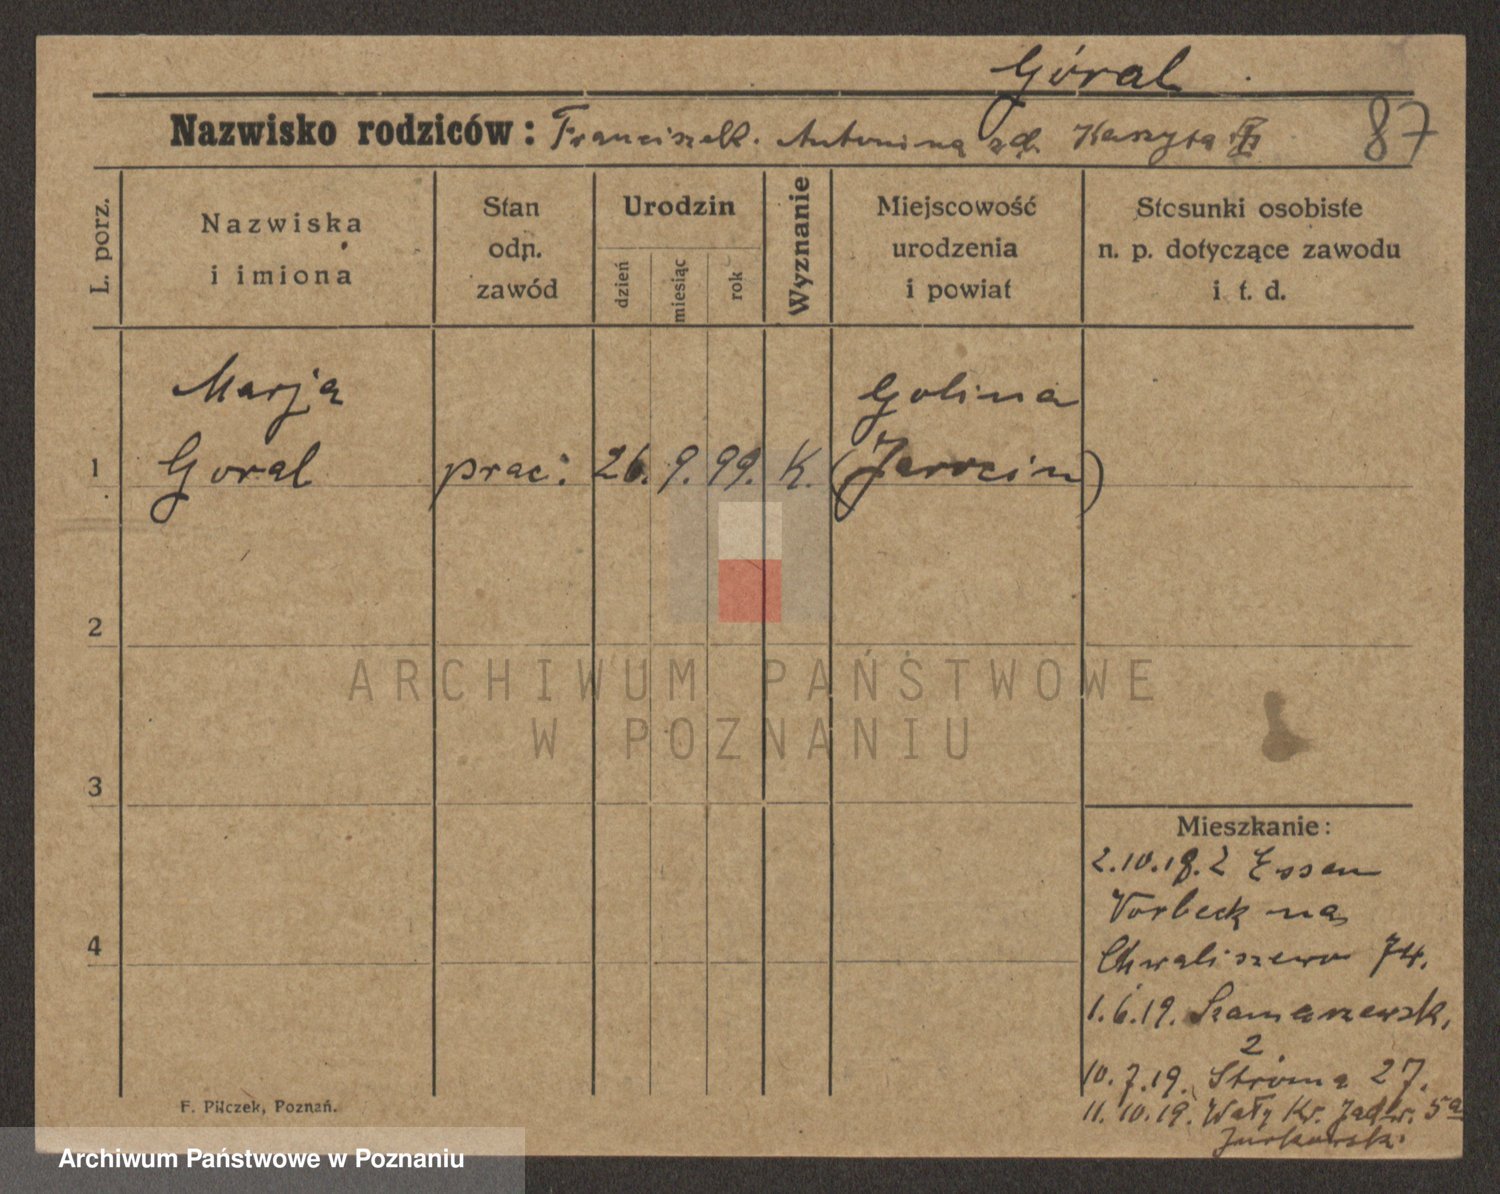 Góral
Nazwisko rodziców: Franciszek. Antonina zd. Kaszyta
87
L. porz.
Nazwiska
i imiona
Stan
odn.
zawód
Urodzin
dzień
miesiąc
rok
Wyznanie
Miejscowość
urodzenia
i powiat
Stosunki osobiste
n. p. dotyczące zawodu
i t. d.
Marja Golina
1 Goral prac: 26. 9. 99. K. (Jarocin)
2
ARCHIWUM PAŃSTWOWE
W POZNANIU
3
Mieszkanie:
2.10.18. z Essen
Vorbeck na
4 Chwaliszewo 74.
1.6.19. Szamarzewsk.
2
10.7.19. Stroma 27.
11.10.19. Wały Kr. Jadw. 5a
Jurkowski
F. Pilczek, Poznań.
Archiwum Państwowe w Poznaniu